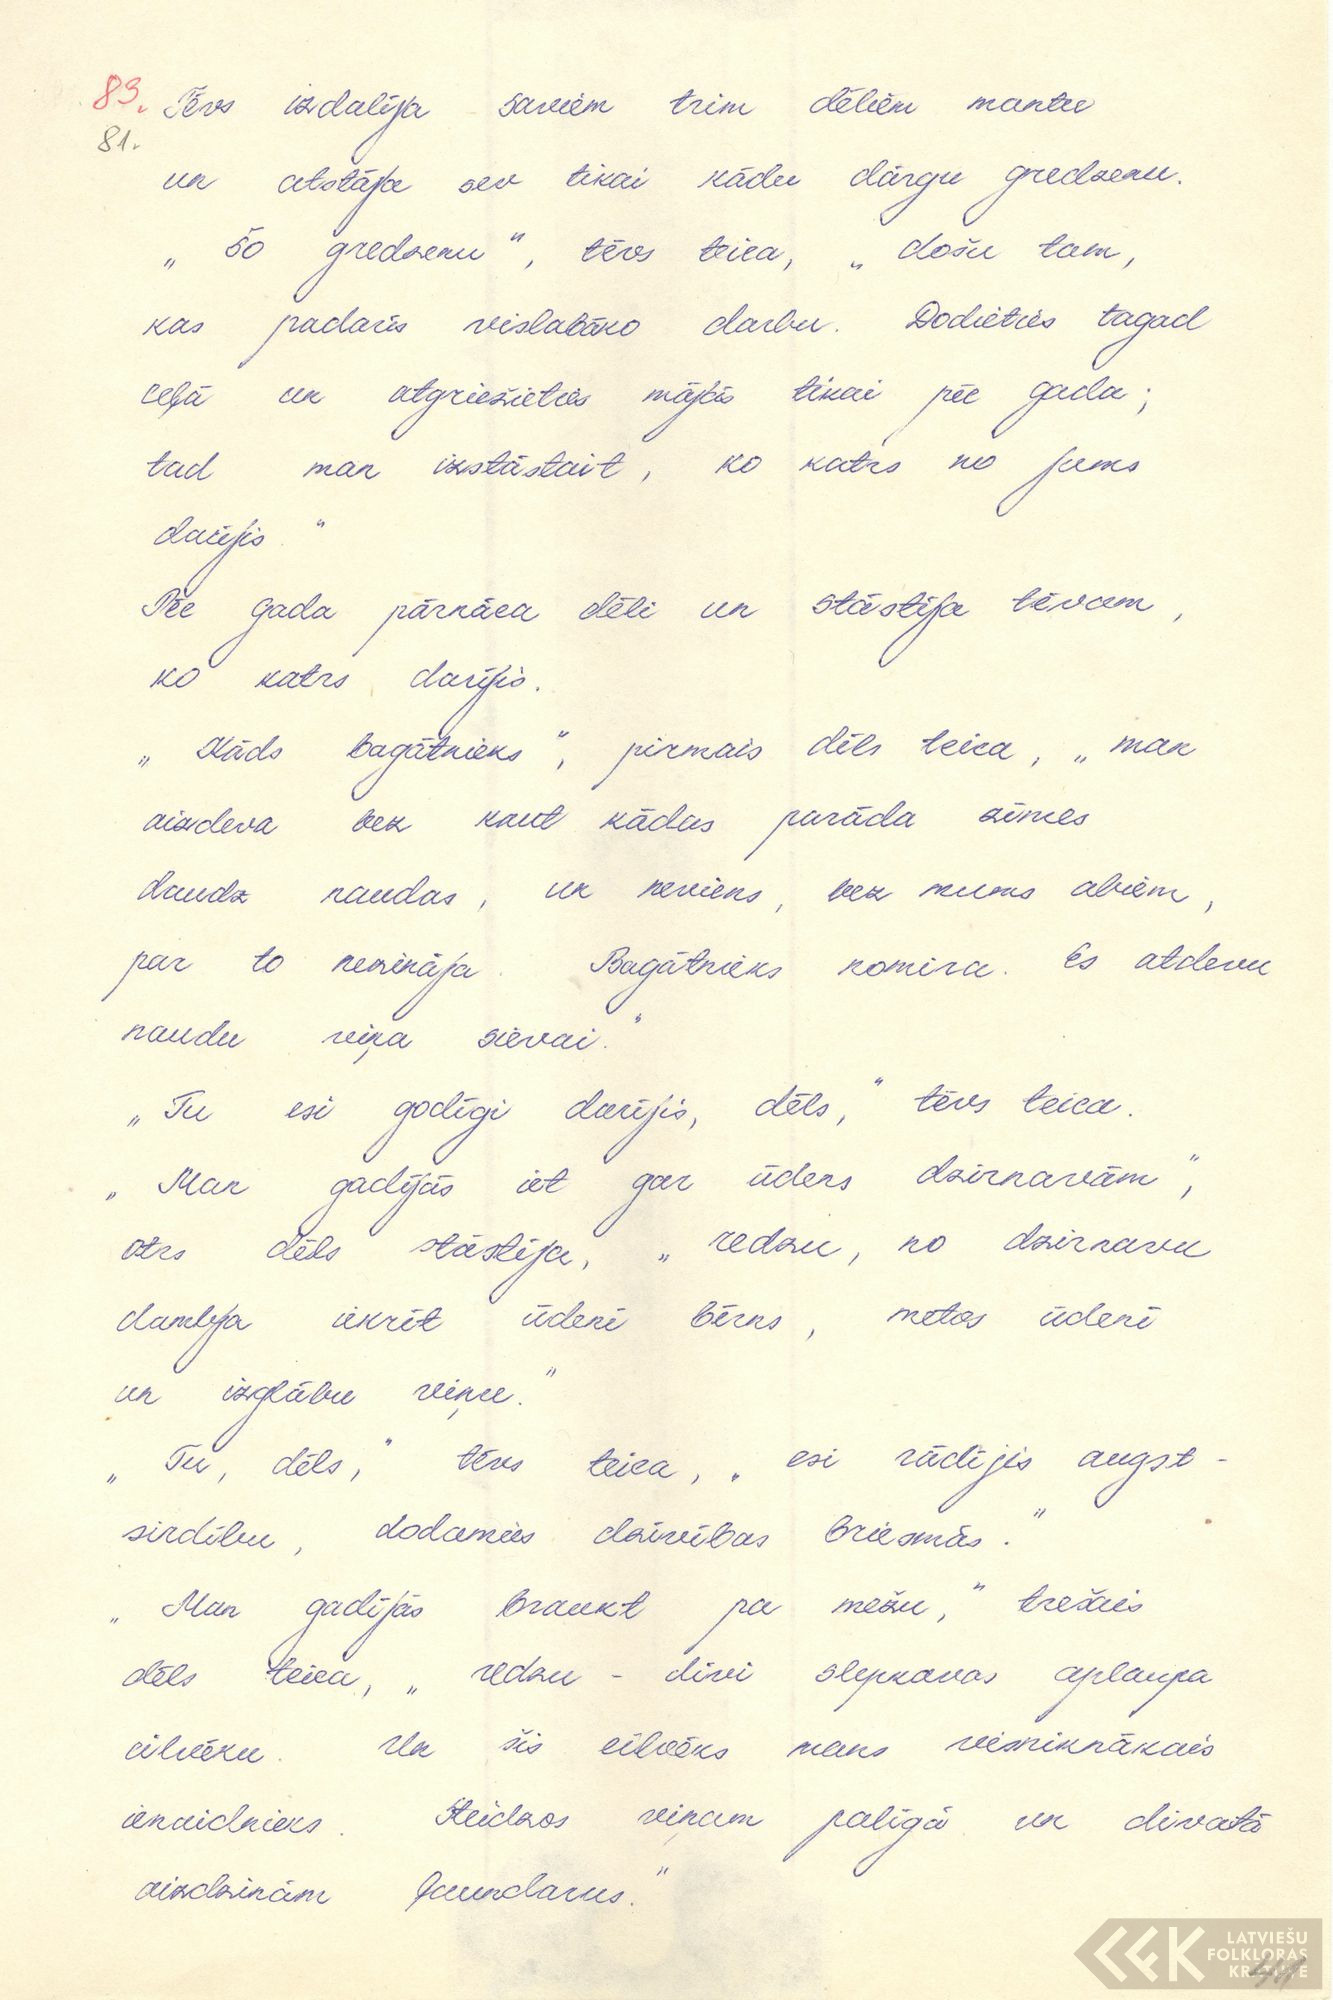 83. Tēvs izdalīja saviem trim dēliem mantu
81.
un atstāja sev tikai kādu dārgu gredzenu.
„Šo gredzenu", tēvs teica, „došu tam,
kas padarīs vislabāko darbu. Dodieties tagad
ceļā un atgriežieties mājās tikai pēc gada;
tad man izstāstait, ko katrs no jums
darījis."
Pēc gada pārnāca dēli un stāstīja tēvam,
ko katrs darījis.
„Kāds bagātnieks", pirmais dēls teica, „man
aizdeva bez kaut kādas parāda zīmes
daudz naudas, un neviens, bez mums abiem,
par to nezināja. Bagātnieks nomira. Es atdevu
naudu viņa sievai."
„Tu esi godīgi darījis, dēls," tēvs teica.
„Man gadījās iet gar ūdens dzirnavām",
otrs dēls stāstīja, „redzu, no dzirnavu
dambja iekrīt ūdenī bērns, metos ūdenī
un izglābu viņu."
„Tu, dēls," tēvs teica, „esi rādījis augst-
sirdību, dodamies dzīvības briesmās."
„Man gadījās braukt pa mežu," trešais
dēls teica, „redzu - divi slepkavas aplaupa
cilvēku. Un šis cilvēks mans visniknākais
ienaidnieks. Steidzos viņam palīgā un divatā
aizdzinām ļaundarus."
LATVIEŠU
FOLKLORAS
KRĀTUVE